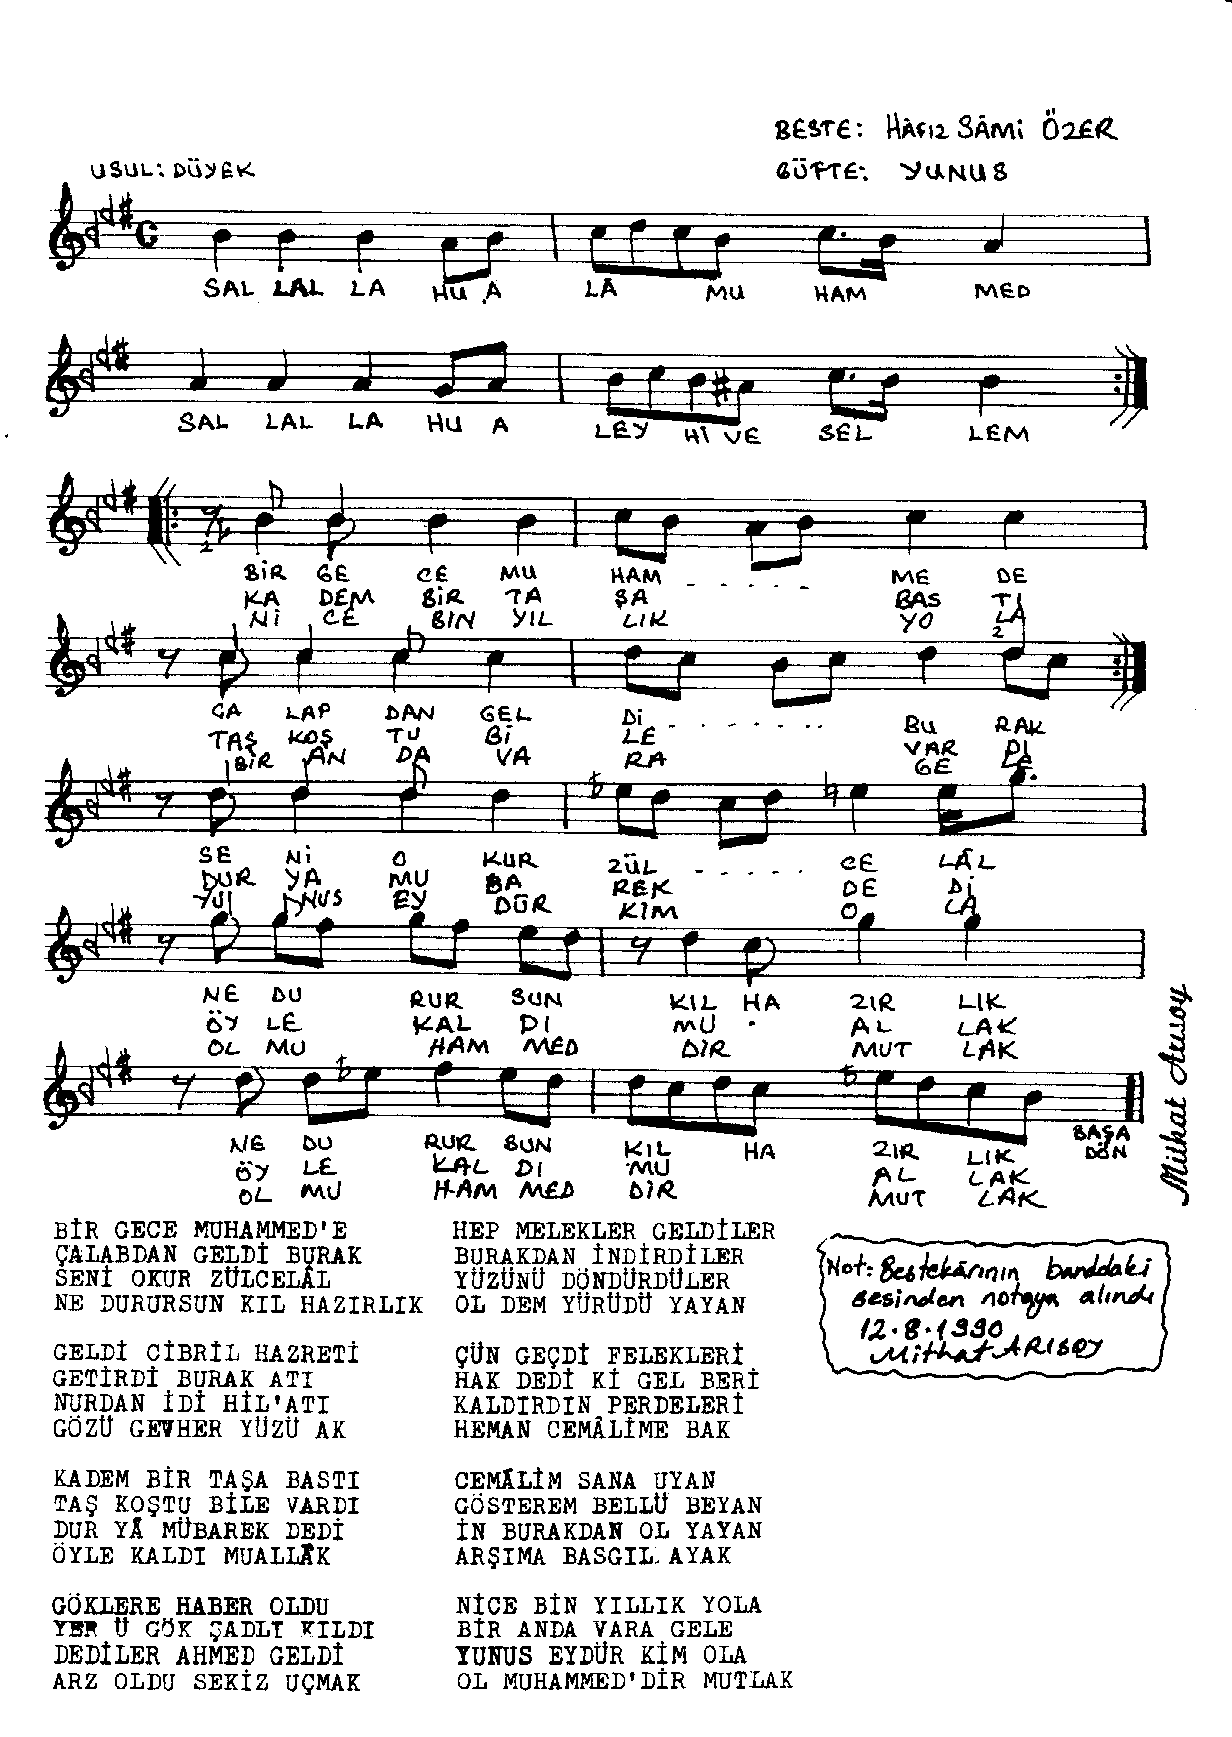 BESTE: HÂFIZ SÂMİ ÖZER
USUL: DÜYEK
GÜFTE: YUNUS
SAL LAL LA HU A LÂ MU HAM MED
SAL LAL LA HU A LEY Hİ VE SEL LEM
BİR GE CE MU HAM - - - - - - ME DE
KA DEM BİR TA ŞA BAS TI
Nİ CE BİN YIL LIK YO LA
ÇA LAP DAN GEL Dİ - - - - - - BU RAK
TAŞ KOŞ TU Bİ LE VAR DI
BİR AN DA VA RA GE LE
SE Nİ O KUR ZÜL - - - - - CE LÂL
DUR YA MU BA REK DE Dİ
YU NUS EY DÜR KİM O LA
NE DU RUR SUN KIL HA ZIR LIK
ÖY LE KAL DI MU AL LAK
OL MU HAM MED DİR MUT LAK
NE DU RUR SUN KIL HA ZIR LIK
ÖY LE KAL DI MU AL LAK
OL MU HAM MED DİR MUT LAK
BAŞA
DÖN
Mithat Arısoy
BİR GECE MUHAMMED'E
ÇALABDAN GELDİ BURAK
SENİ OKUR ZÜLCELÂL
NE DURURSUN KIL HAZIRLIK
GELDİ CİBRİL HAZRETİ
GETİRDİ BURAK ATI
NURDAN İDİ HİL'ATI
GÖZÜ GEVHER YÜZÜ AK
KADEM BİR TAŞA BASTI
TAŞ KOŞTU BİLE VARDI
DUR YÂ MÜBAREK DEDİ
ÖYLE KALDI MUALLÂK
GÖKLERE HABER OLDU
YER Ü GÖK ŞADLI KILDI
DEDİLER AHMED GELDİ
ARZ OLDU SEKİZ UÇMAK
HEP MELEKLER GELDİLER
BURAKDAN İNDİRDİLER
YÜZÜNÜ DÖNDÜRDÜLER
OL DEM YÜRÜDÜ YAYAN
ÇÜN GEÇDİ FELEKLERİ
HAK DEDİ Kİ GEL BERİ
KALDIRDIN PERDELERİ
HEMAN CEMÂLİME BAK
CEMÂLİM SANA UYAN
GÖSTEREM BELLÜ BEYAN
İN BURAKDAN OL YAYAN
ARŞIMA BASGIL AYAK
NİCE BİN YILLIK YOLA
BİR ANDA VARA GELE
YUNUS EYDÜR KİM OLA
OL MUHAMMED'DİR MUTLAK
Not: Bestekârının banddaki
sesinden notaya alındı
12.8.1990
Mithat ARISOY